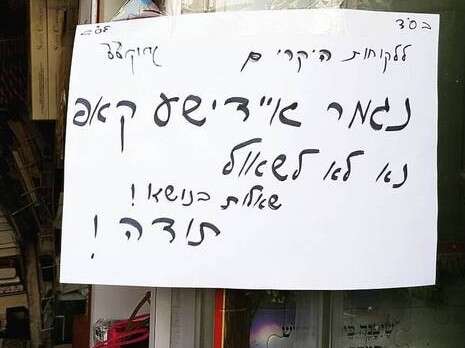 בס"ד
ללקוחות היקרים
נגמר איידישע קאפ
נא לא לשאול
שאלות בנושא !
תודה !